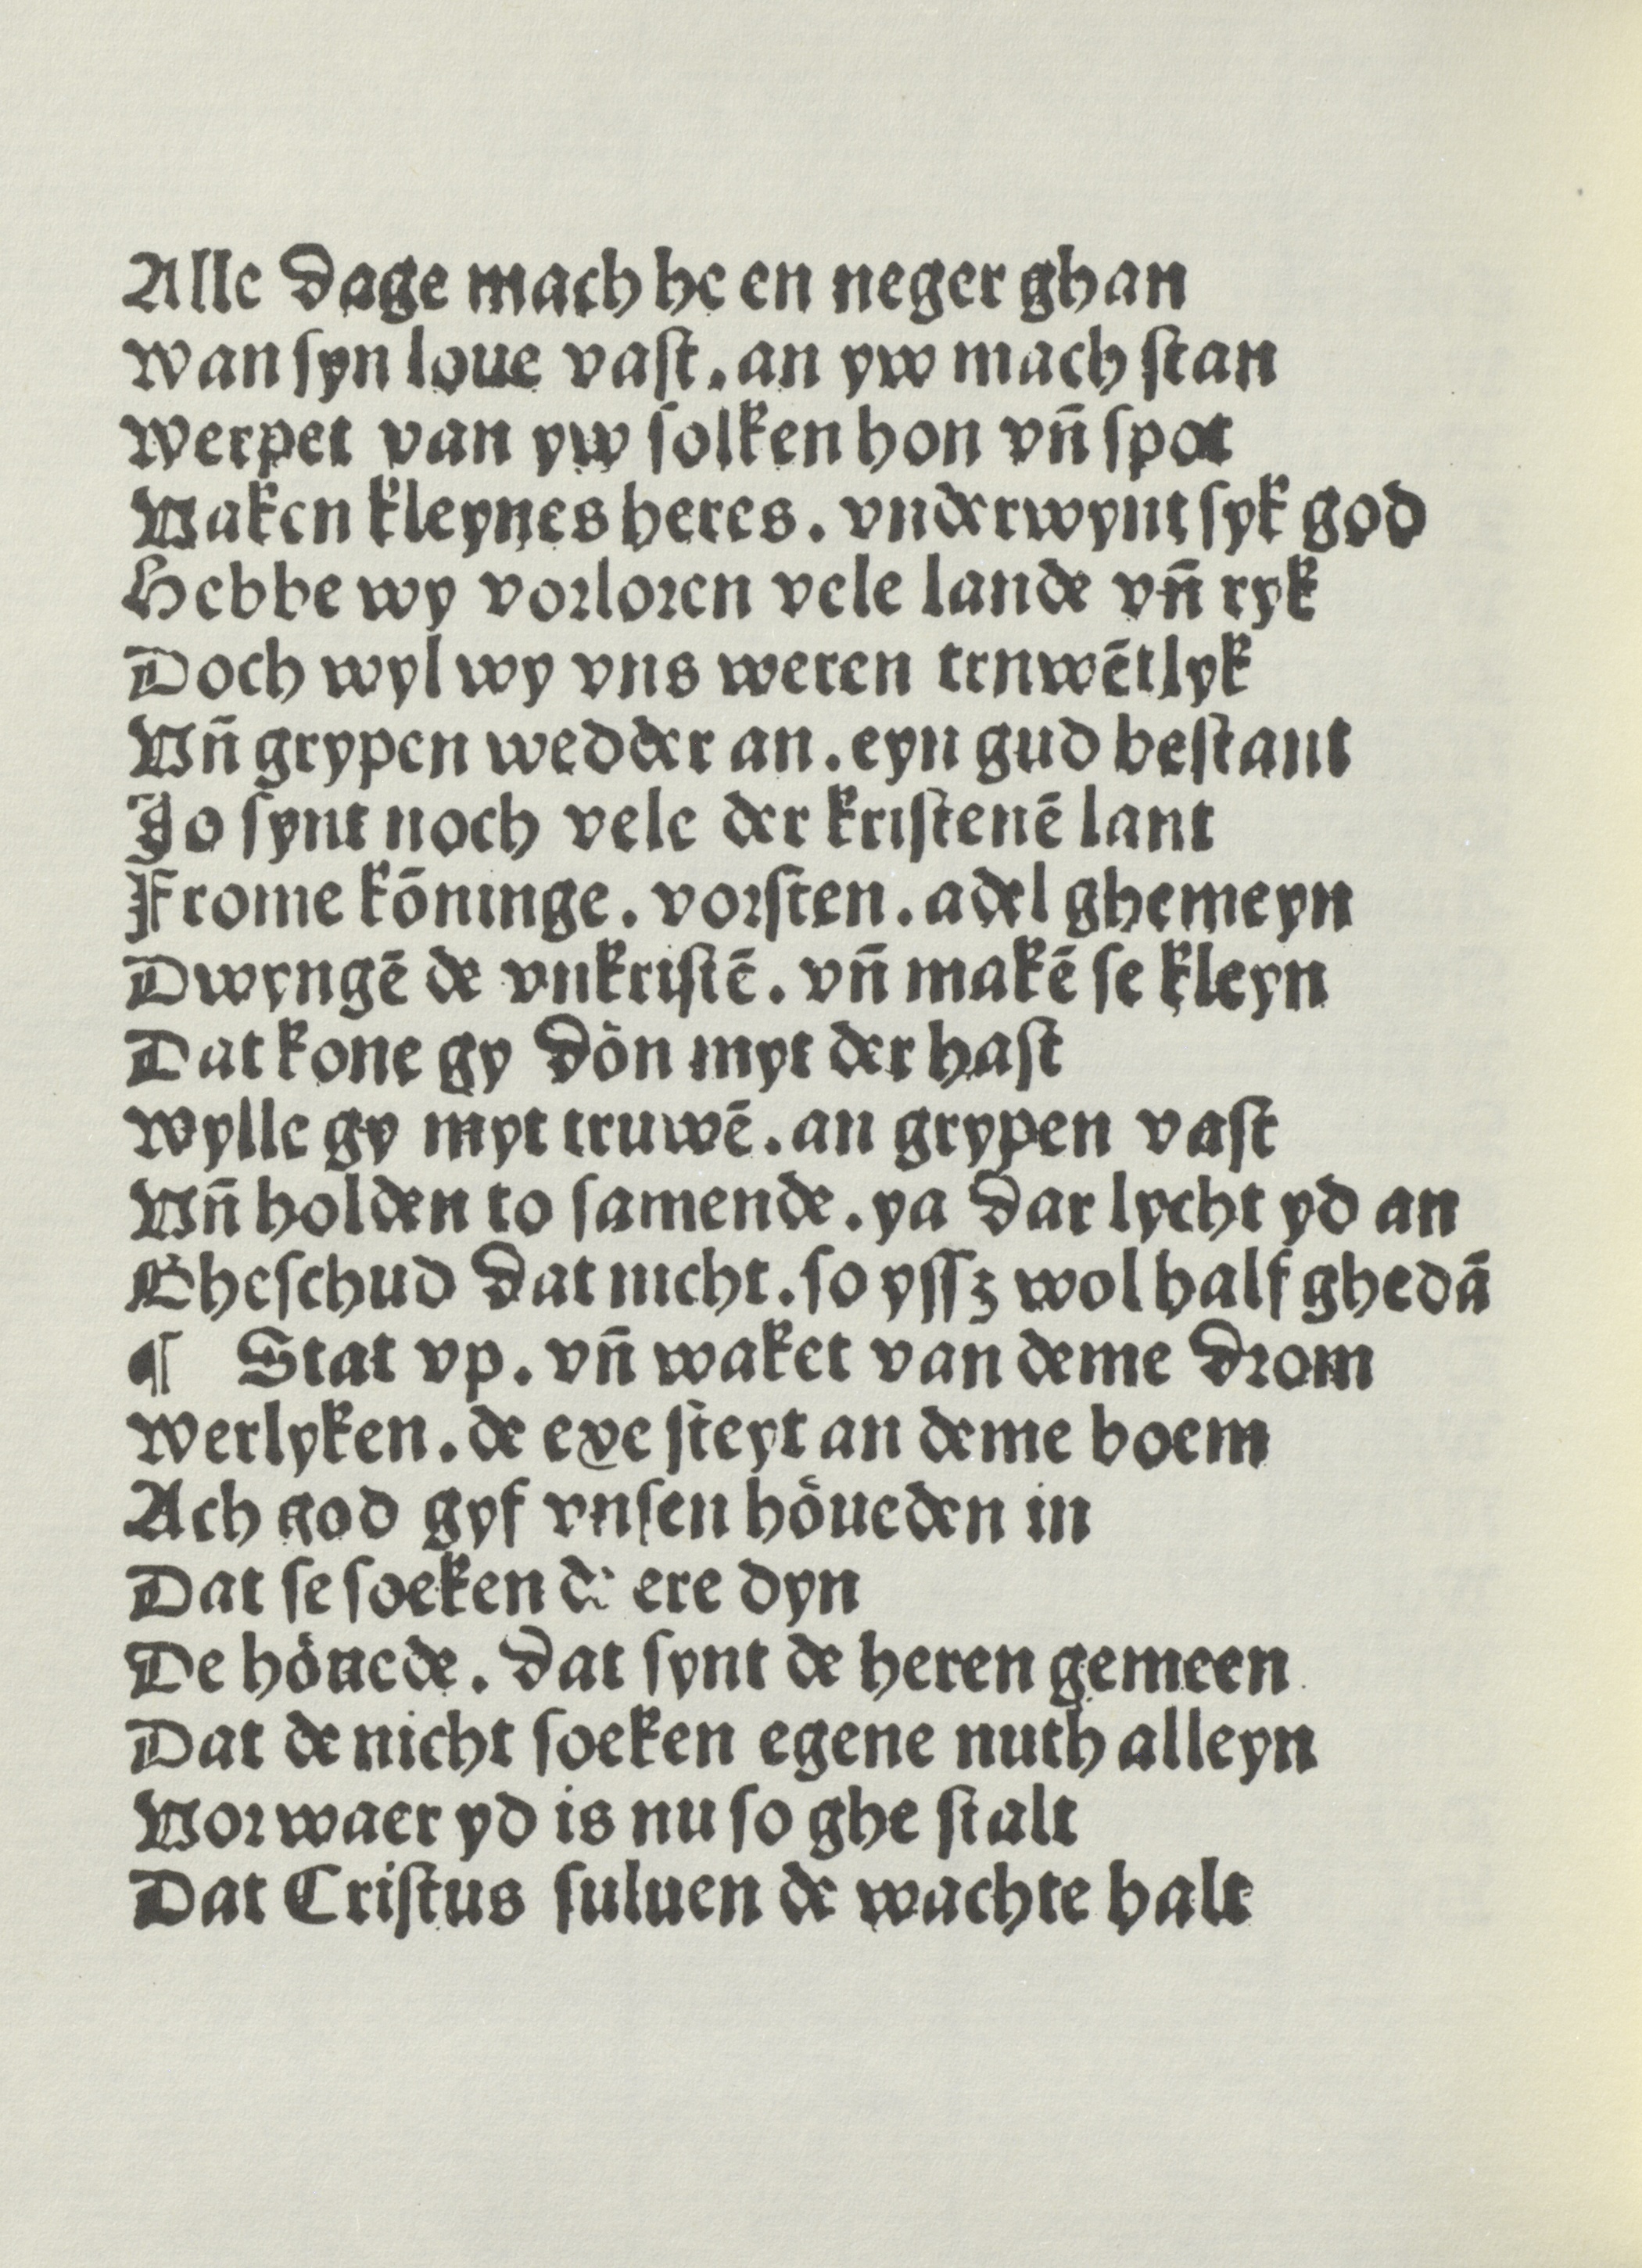 Alle dage mach he en neger ghan
wan ſyn loue vaſt. an yw mach ſtan
werpet van yw ſolken hon vn̄ ſpot
Vaken kleynes heres. vnderwynt ſyk god
Hebbe wy vorloren vele lande vn̄ ryk
Doch wyl wy vns weren trnwētlyk
Vn̄ grypen wedder an. eyn gud beſtant
Jo ſynt noch vele der kriſtenē lant
Frome kōninge. vorſten. adel ghemeyn
Dwyngē de vnkriſtē. vn̄ makē ſe kleyn
Dat kone gy dön myt der haſt
wylle gy myt truwē. an grypen vaſt
Vn̄ holden to ſamende. ya dar lycht yd an
Gheſchud dat nicht. ſo yſſz wol half ghedā
¶ Stat vp. vn̄ waket van deme drom
werlyken. de exe ſteyt an deme boem
Ach god gyf vnſen höueden in
Dat ſe ſoeken de ere dyn
De höuede. dat ſynt de heren gemeen
Dat de nicht ſoeken egene nuth alleyn
Vorwaer yd is nu ſo ghe ſtalt
Dat Criſtus ſuluen de wachte halt